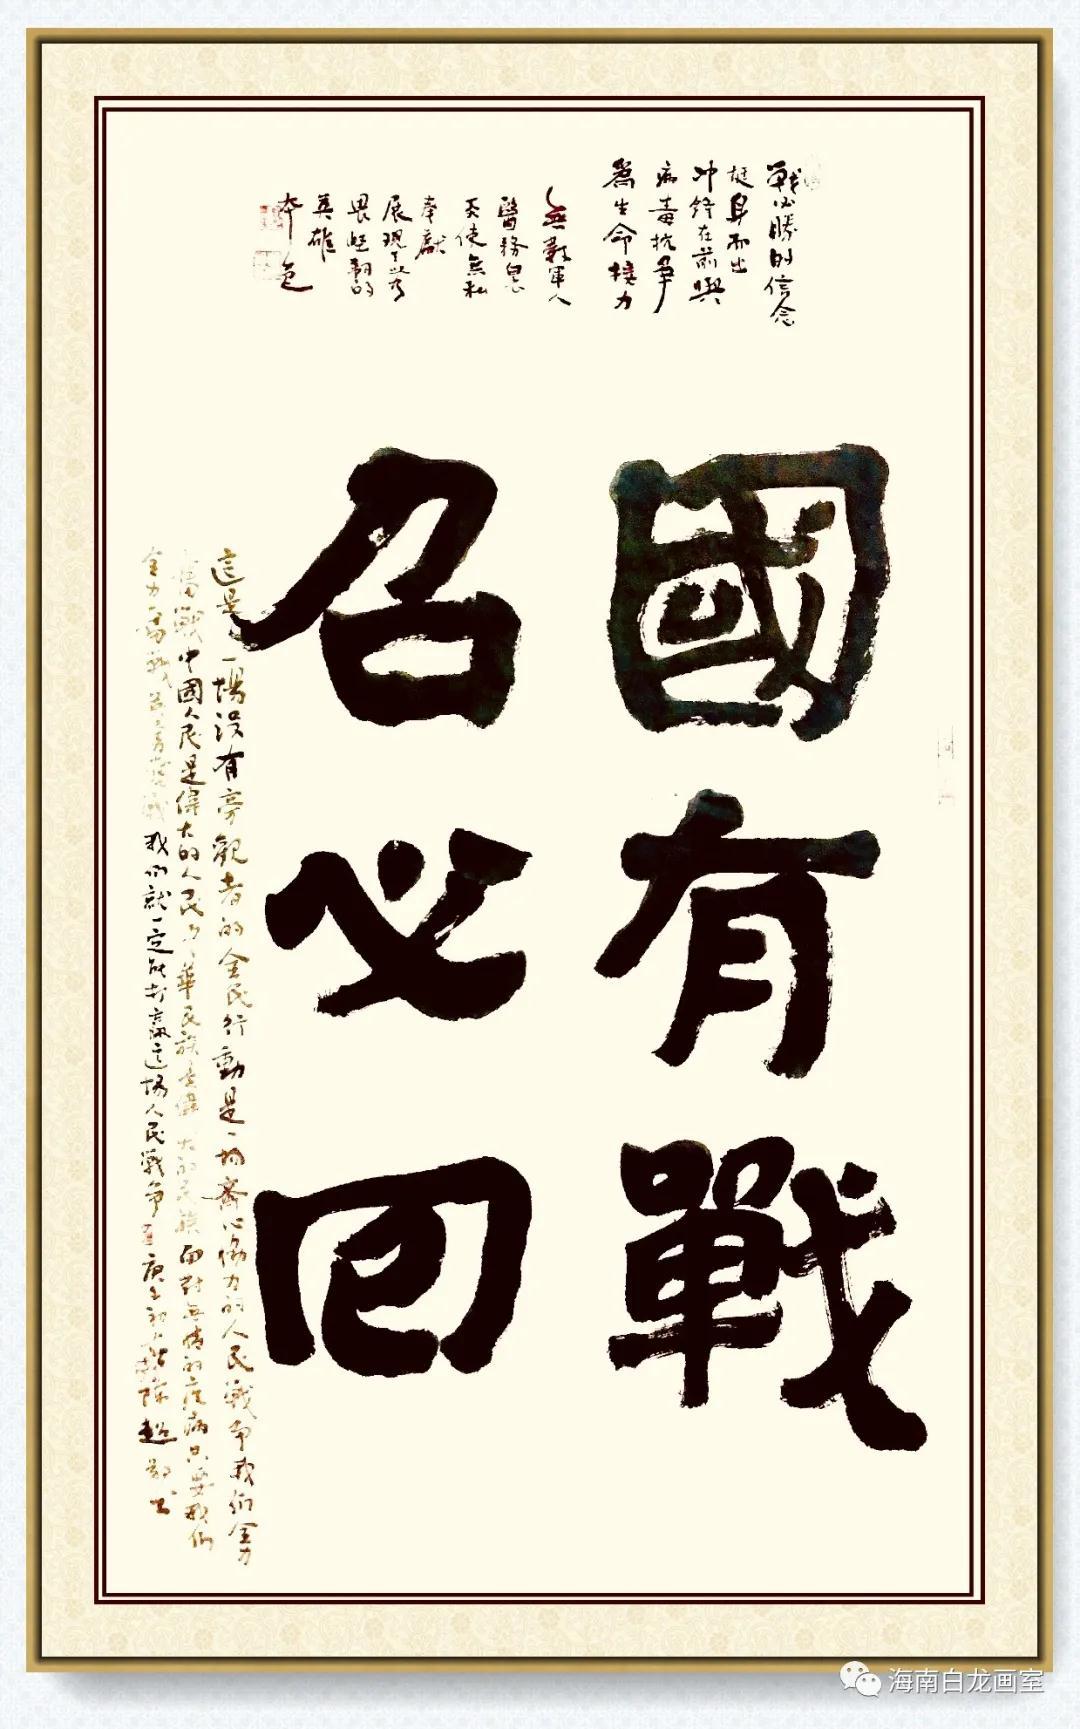 戰必勝的信念
挺身而出
冲鋒在前與
病毒抗争
為生命接力
無數軍人
醫務
天使無私
奉獻
展現了
畏艱的
英雄
本色
國有戰
召必回
這是一場没有旁觀者的全民行動是一場齊心協力的人民戰争我们全力
奮戰中國人民是偉大的人民中華民族是偉大的民族面對無情的疫病只要我们
全力奮戰英勇奮戰我们就一定能打赢這場人民戰争庚子初陳超书
海南白龙画室